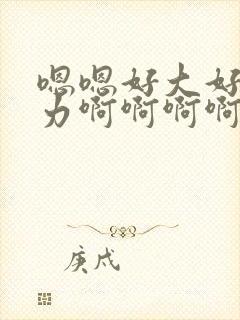 嗯嗯好大好
力啊啊啊啊
庚戌